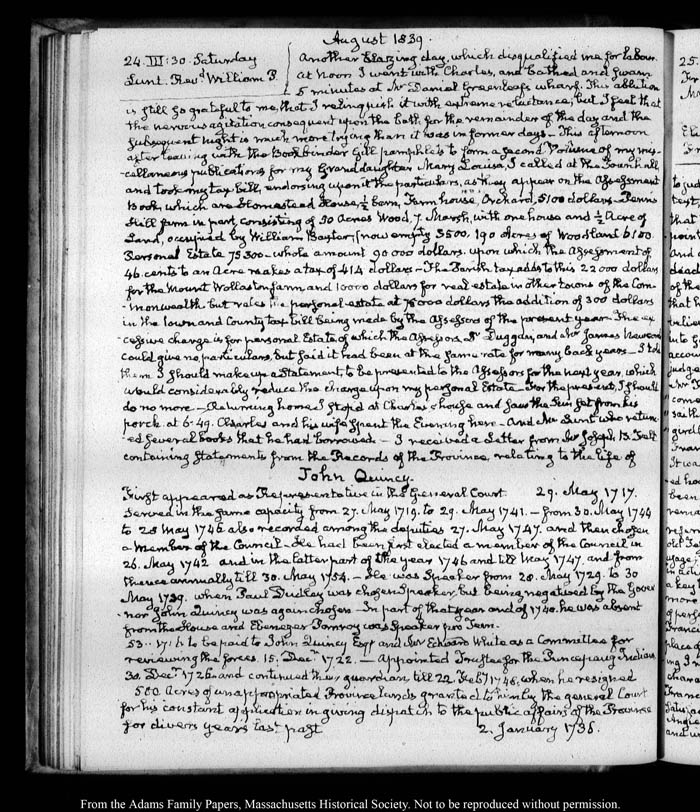 August 1839.
24. III:30. Saturday
Lunt. Revd. William P.
Another blazing day, which disqualified me for labour.
at Noon I went with Charles, and bathed and swam
5 minutes at Mr Daniel Greenleaf's wharf. This ablution
is still so grateful to me, that I relinquish it with extreme reluctance; but I feel that
the nervous agitation consequent upon the bath for the remainder of the day and the
subsequent Night is much more trying than it was in former days — This afternoon
after leaving with the Bookbinder Gill pamphlets to form a second Volume of my mis-
cellaneous publications for my Granddaughter Mary Louisa, I called at the Townhall
and took my tax bill, endorsing upon it the particulars, as they appear on the Assessment
Book, which are Homestead House, ½ barn, Farm house, Orchard, 5100 dollars — Penns
Hill farm in part, consisting of 30 Acres Wood, 7. Marsh, with one house and ½ Acre of
Land, occupied by William Baxter, (now empty 3500. 190 Acres of Woodland 6100.
Personal Estate 75300 — whole amount 90000 dollars. upon which the Assessment of
46 cents to an Acre makes a tax of 414 dollars — The Parish tax adds to this 22000 dollars
for the Mount Wollaston farm and 10000 dollars for real estate in other towns of the Com-
monwealth but rates the personal estate at 75000 dollars the addition of 300 dollars
in the Town and County tax bill being made by the Assessors of the present year — The ex
cessive charge is for personal Estate of which the Assessors, Dr Duggan, and Mr James Newcomb
could give no particulars, but said it had been at the same rate for many back years — I told
them I should make up a Statement, to be presented to the Assessors for the next year, which
would considerably reduce the charge upon my personal Estate — For the present, I should
do no more — Returning home I stop'd at Charles's house and saw the Sun set from his
porch. at 6-49. Charles and his wife spent the Evening here — And Mr Lunt who return-
ed several books that he had borrowed — I received a Letter from Mr Joseph B. Felt
containing Statements from the Records of the Province, relating to the life of
John Quincy.
First appeared as Representative in the General Court 29. May 1717.
Served in the same capacity from 27. May 1719. to 29. May 1741. — from 30. May 1744
to 28 May 1746 also recorded among the deputies 27. May 1747. and then chosen
a member of the Council — He had been first elected a member of the Council in
26. May 1742 and in the latter part of the year 1746 and till May 1747. and from
thence annually till 30. May 1754. — He was Speaker from 28. May 1729. to 30
May 1739. when Paul Dudley was chosen Speaker, but being negatived by the Gover
nor John Quincy was again chosen — In part of that year and of 1740. he was absent
from the House and Ebenezer Pomroy was Speaker pro Tem.
53.. 17..6 to be paid to John Quincy Esqr and Mr Edward White as a Committee for
reviewing the forces. 15. Decr. 1722. — Appointed Trustee for the Punccpaug Indians
30. Decr. 1726 and continued their guardian till 22. Feby 1746, when he resigned
500 Acres of unappropriated Province lands granted to him by the general Court
for his constant application in giving dispatch to the public affairs of the Province
for divers years last past 2. January 1736.
From the Adams Family Papers, Massachusetts Historical Society. Not to be reproduced without permission.